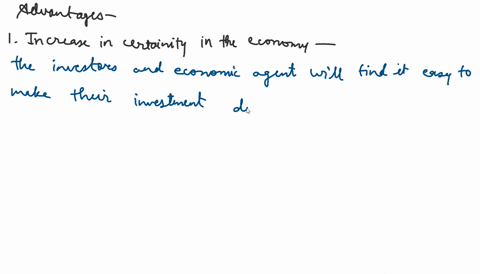 Advantages—
1. Increase in certainity in the economy —
the investors and economic agent will find it easy to
make their investment de